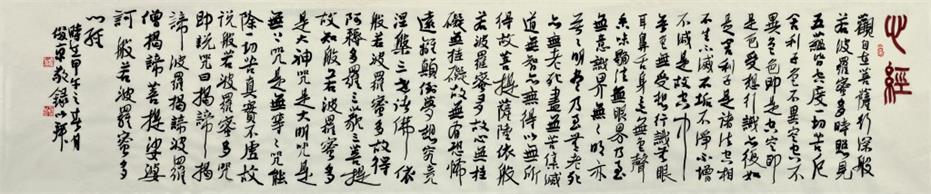 心經
觀自在菩薩行深般
若波羅蜜多時照見
五蘊皆空度一切苦厄
舍利子色不異空空不
異色色即是空空即
是色受想行識亦復如
是舍利子是諸法空相
不生不滅不垢不淨不增
不減是故空中
無色無受想行識無眼
耳鼻舌身意無色聲
香味觸法無眼界乃至
無意識界無無明亦
無無明盡乃至無老死
亦無老死盡無苦集滅
道無智亦無得以無所
得故菩提薩陲依般
若波羅蜜多故心無桂
礙無桂礙故無有恐怖
遠離顛倒夢想究竟
涅槃三世諸佛依
般若波羅蜜多故得
阿耨多羅三藐三菩提
故知般若波羅蜜多
是大神咒是大明咒是
無上咒是無等等咒能
除一切苦真實不虛故
說般若波羅蜜多咒
即說咒曰揭諦揭
諦波羅揭諦波羅
僧揭諦菩提娑婆
訶般若波羅蜜多
心經
時在甲午之春月
敬錄